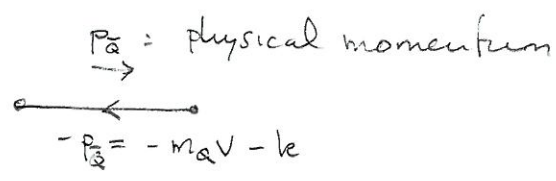 P_Q̄ : physical momentum
- P_Q̄ = - m_Q v - k